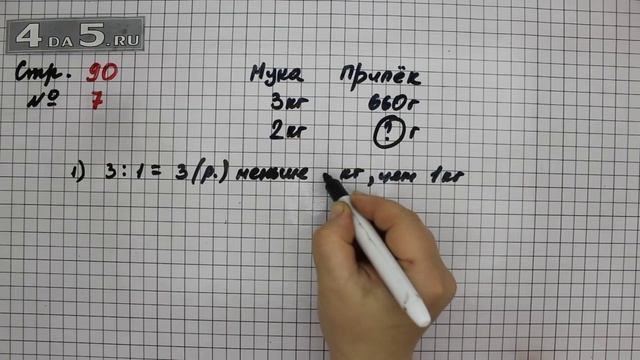 4 DA 5.RU
Стр. 90
№ 7
Мука Припёк
3 кг 660 г
2 кг ? г
1) 3 : 1 = 3 (р.) меньше кг, чем 1 кг